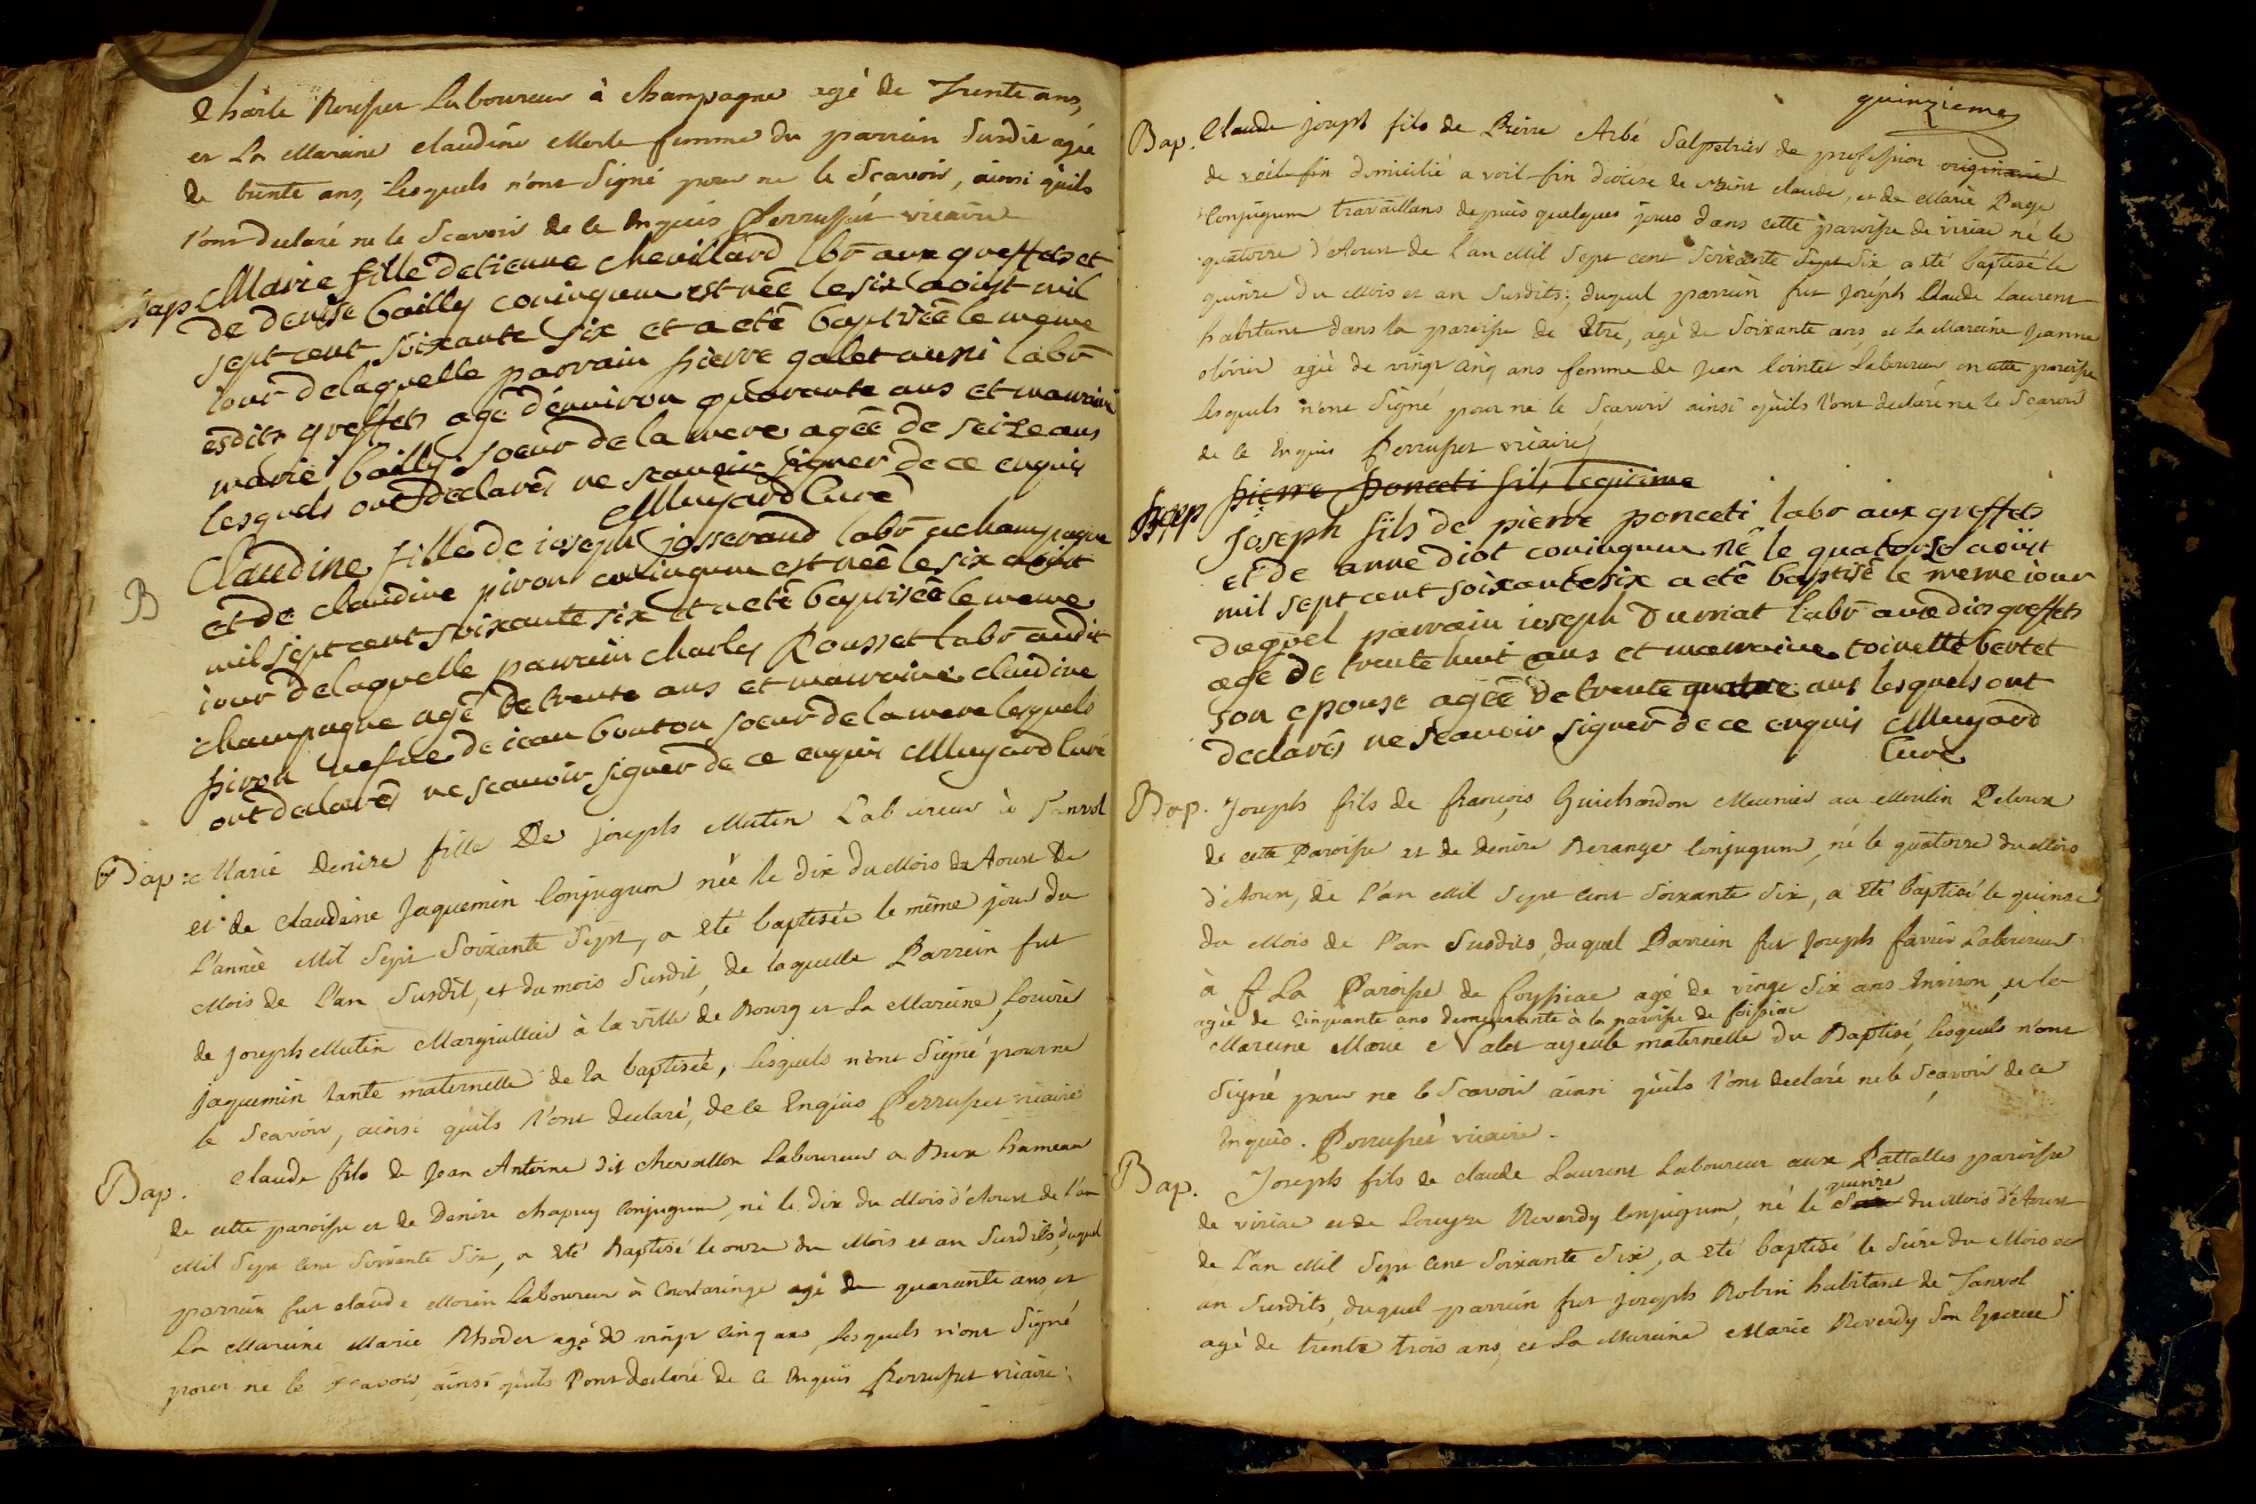 Charle Rousset Laboureur à Champagne agé de Trente ans,
et La Maraine Claudine Merle femme du parrain Susdit agée
de trente ans, Lesquels n'ont Signé pour ne le Sçavoir, ainsi qu'ils
l'ont declaré ne le Scavoir de ce Enquis Perrusset vicaire
Bap Marie fille detienne chevillard lbr aux greffets et
de denise bailly coniugum est née le six aoust mil
sept cent soixante six et a eté baptisée le meme
iour de laquelle parrain pierre galet aussi labr
esdits greffets agé denviron quarante ans et marraine
marie bailly soeur de la mere agée de seize ans
lesquels ont declarés ne scauoir signer de ce enquis
Muyard Curé
B Claudine fille de ioseph josserand labr a champagne
et de claudine piron coniugum est née le six aoust
mil sept cent soixante six et a eté baptisée le meme
iour de laquelle parrain charles Rousset labr audit
champagne agé de trente ans et marraine claudine
piron vefue de iean bouton soeur de la mere lesquels
ont declarés ne scauoir signer de ce enquis Muyard Curé
Bap: Marie Denise fille De joseph Mutin Laboureur à Tanvol
et de Claudine Jaquemin Conjugum née le dix du Mois de Aoust De
L'année Mil Sept Soixante Sept, a eté baptisée le même jour du
Mois de L'an Susdit, et du mois Susdit, de laquelle Parrein fut
de joseph Mutin Margiullier à la ville de Bourg et La Mareine Louise
Jaquemin tante maternelle de la baptisée, Lesquels n'ont Signé pour ne
le Scavoir, ainsi qu'ils l'ont declaré, de ce Enquis Perrusset vicaire
Bap. Claude fils de Jean Antoine dit chevallon Laboureur a Bux hameau
de cette paroisse et de Denise chapuy Conjugum, né le dix du Mois d'Aoust de l'an
Mil Sept Cent Soixante Six, a eté Baptisé le onze du Mois et an Susdits, duquel
parrein fut claude Morin Laboureur à Curtaringe agé de quarante ans, et
La Mareine Marie Rhodet agé de vingt Cinq ans, Lesquels n'ont Signé
pour ne le Scavoir, ainsi qu'ils l'ont declaré de ce Enquis Perrusset vicaire.
quinzieme
Bap. Claude joseph fils de Pierre Arbé Salpetrier de profession originaire
de voil-fin domicilié a voil-fin diocèse de Saint Claude, et de Marie Page
Conjugum travaillans depuis quelques jours dans cette paroisse de viriac né le
quatorze d'Aoust de l'an Mil Sept cent Soixante Sept Six, a eté baptisé le
quinze du Mois et an Susdits; duquel parrein fut Joséph Claude Laurent
habitant dans la paroisse de Etre, agé de Soixante ans, et La Mareine Jeanne
olivier agée de vingt Cinq ans femme de Jean Cointet Laboureur en cette paroisse
Lesquels n'ont Signé pour ne le Scavoir ainsi qu'ils l'ont declaré ne le Scavoir
de ce Enquis Perrusset vicaire
Bapp pierre ponceti fils legitime
joseph fils de pierre ponceti labr aux greffets
et de anne diot coniugum né le quatorze aoust
mil sept cent soixante six a eté baptisé le meme iour
duquel parrain ioseph Durriat labr auxdits greffets
agé de trente huit ans et marraine toinette bertet
son epouse agée de trente quatre ans lesquels ont
declarés ne scauoir signer de ce enquis Muyard
Curé
Bap. Joseph fils de françois Guichardon Meunier au Moulin Peloux
de cette Paroisse et de Denise Beranger Conjugum, né le quatorze du Mois
d'Aoust, de l'an Mil Sept Cent Soixante Six, a eté baptisé le quinze
du Mois de l'an Susdits, duquel Parrein fut Joseph favier Laboureur
à La Paroisse de foyssiac agé de vingt Six ans Environ, et la
agée de Cinquante ans demeurante à la paroisse de foissiac
Mareine Marie Valet ayeule maternelle du Baptisé, Lesquels n'ont
Signé pour ne le Scavoir ainsi qu'ils l'ont declaré ne le Sçavoir de ce
Enquis. Perrusset vicaire.
Bap. Joseph fils de claude Laurent Laboureur aux Pattalles paroisse
quinze
de viriac et de Louyse Reverdy Conjugum, né le du Mois d'Aoust
de L'an Mil Sept Cent Soixante Six, a eté baptisé le Seize du Mois et
an Susdits, duquel parrein fut joseph Robin habitant de Tanvol
agé de trente trois ans, et La Mareine Marie Reverdy Son Epouse